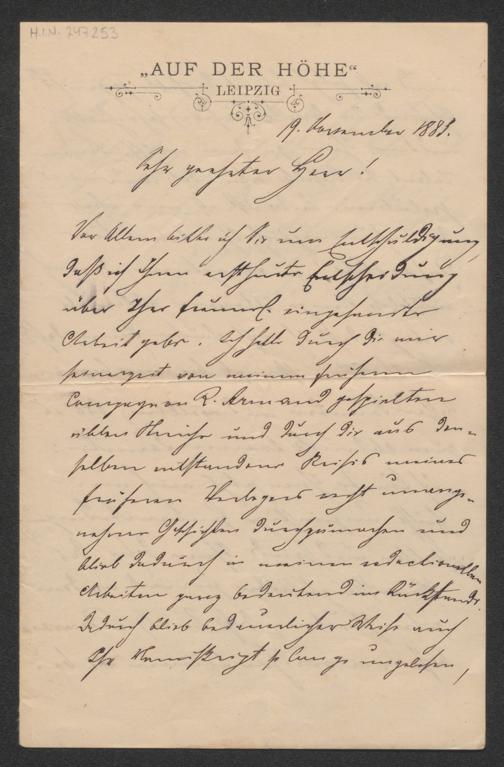 H.I.N. 247253
„AUF DER HÖHE“
LEIPZIG
19. November 1883.
Sehr geehrter Herr!
Vor Allem bitte ich Sie um Entschuldigung,
daß ich Ihnen erst heute Entscheidung
über Ihre freundl. eingesandte
Arbeit gebe. Ich hatte durch die mir
seinerzeit von meinem früheren
Compagnon R. Armand gespielten
üblen Streiche und durch die aus den-
selben entstandene Krisis meines
früheren Verlegers recht unange-
nehme Geschichten durchzumachen und
blieb dadurch in meinen redactionellen
Arbeiten ganz bedeutend im Rückstande.
Dadurch blieb bedauerlicher Weise auch
Ihr Manuskript so lange ungelesen,